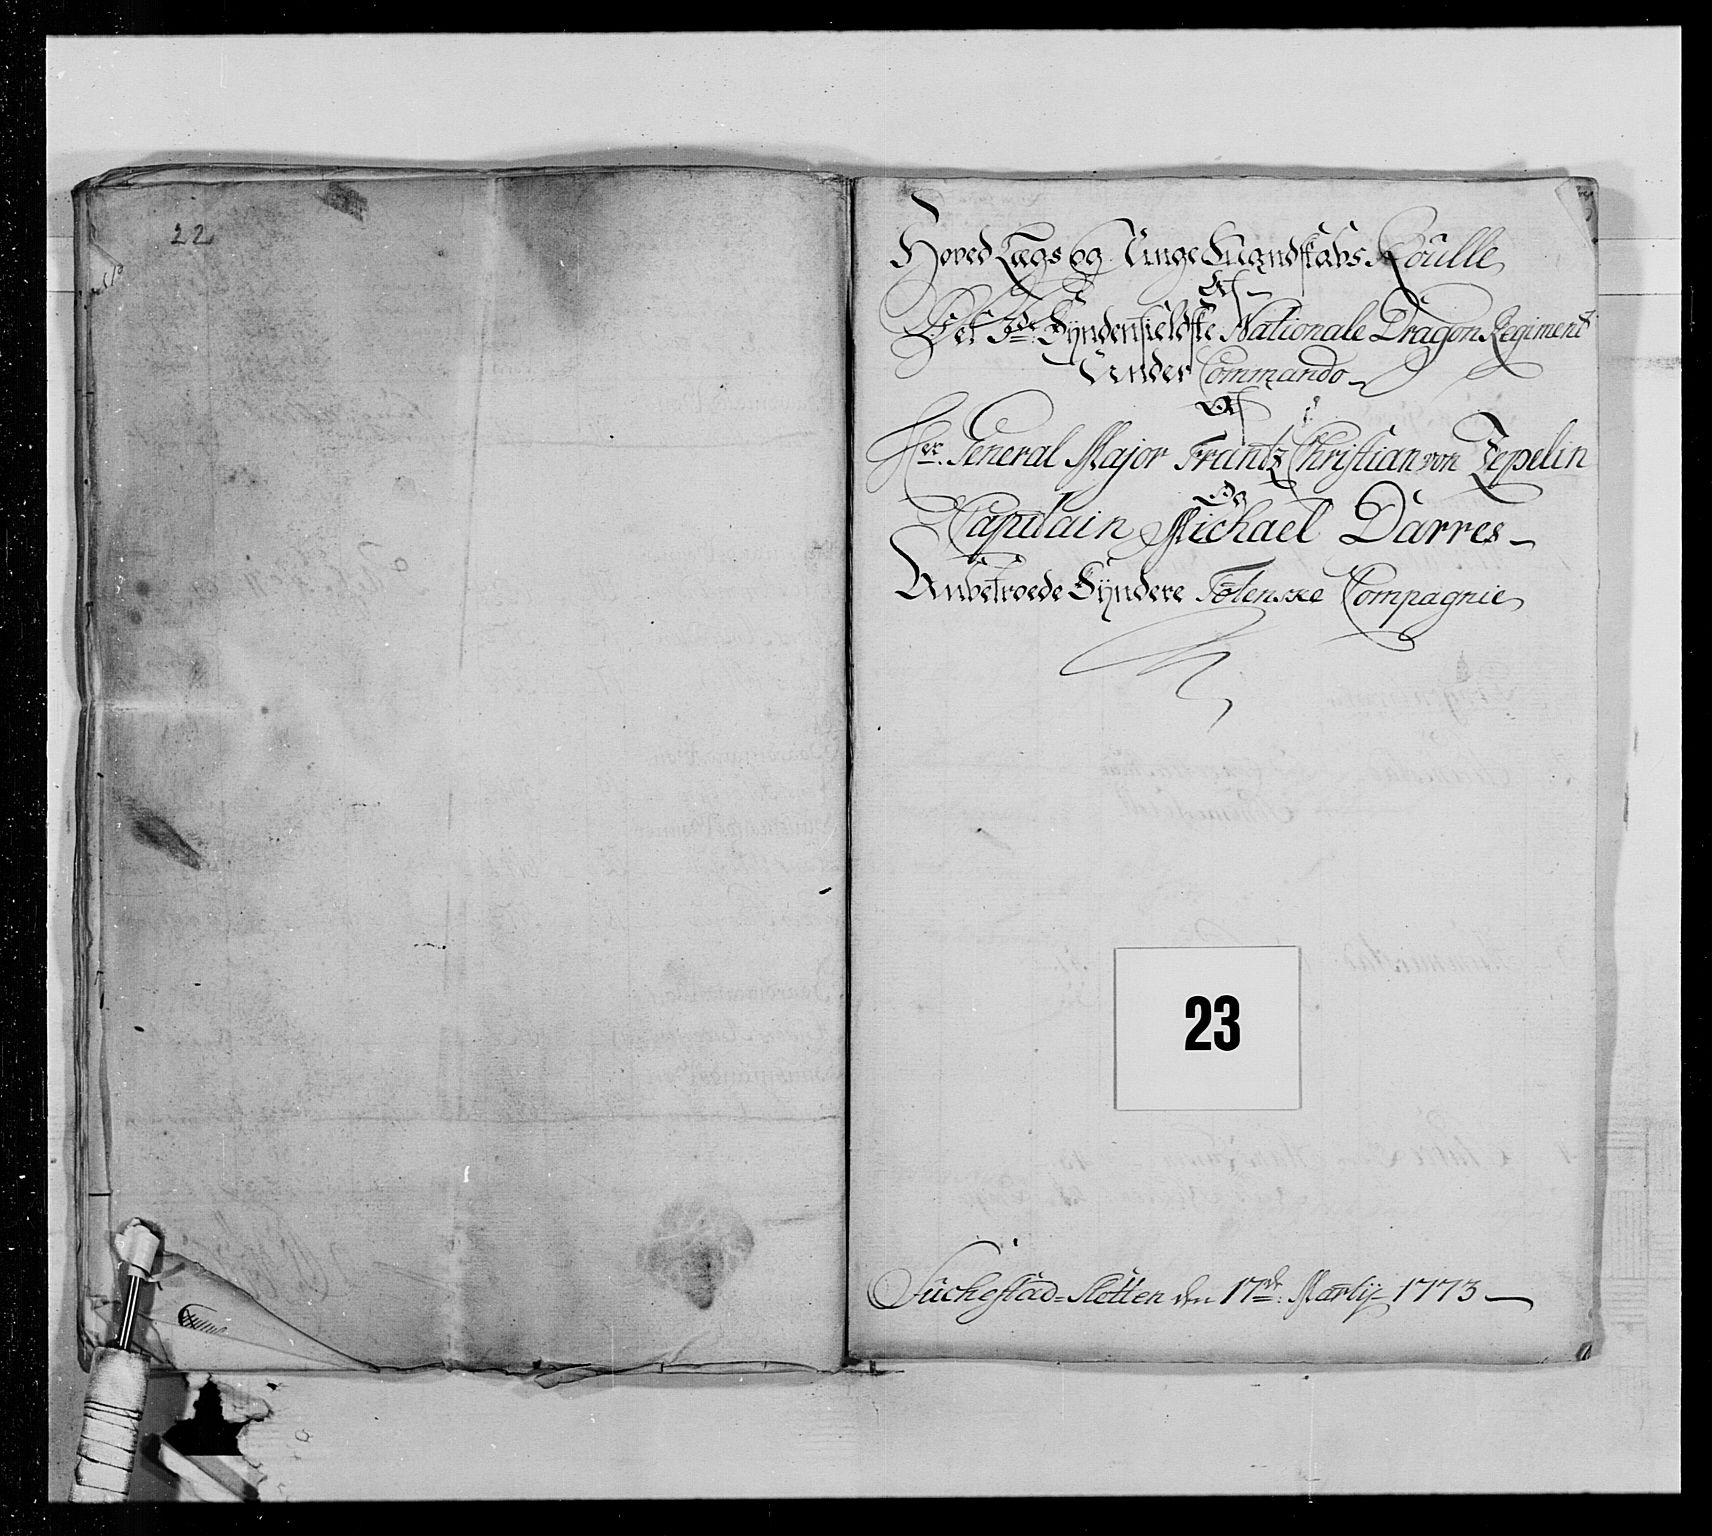 22
Hoved Lægs og Unge Mandskabs Roulle
Af
Det 3de Syndenfieldske Nationale Dragon Regiment
Under Commando
Af
Hr. General Major Frantz Christian von Zepelin
Og
Capitain Michael Darres
Anbetroede Syndere Tolenske Compagnie
23
Fuchestad-Slotten den 17de Martij 1773